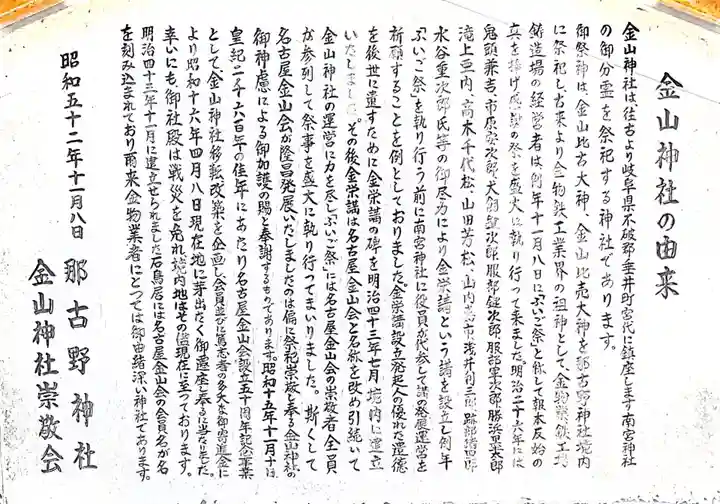 金山神社の由来
金山神社は往古より岐阜県不破郡垂井町宮代に鎮座します南宮神社
の御分霊を祭祀する神社であります。
御祭神は、金山比古大神、金山比売大神を那古野神社境内
に祭祀し古来より金物鉄工業界の祖神として、金物業鉄工場
鋳造場の経営者は例年十一月八日にふいご祭と称して報本反始の
真を捧げ感謝の祭を盛大に執り行って来ました。明治二十六年には
鬼頭兼吉、市原 次郎、犬飼 次郎、服部鍵次郎、服部軍次郎、勝浜黒太郎
滝上亘内、高木千代松、山田芳松、山内 市、浅井利三郎、跡部猪四郎
水谷重次郎氏等の御尽力により金栄講という講を設立し例年
ふいご祭を執り行う前に南宮神社に役員が代参して講の発展運営を
祈願することを例としておりました金栄講設立発起人の優れた遺徳
を後世に遺すために金栄講の碑を明治四十三年七月、境内に建立
いたしました。その後金栄講は名古屋金山会と名称を改め引続いて
金山神社の運営に力を尽しふいご祭には名古屋金山会の崇敬者全員
が参列して祭事を盛大に執り行ってまいりました。斯くして
名古屋金山会が隆昌発展いたしましたのは偏に祭祀崇敬し奉る金山神社の
御神慮による御加護の賜と奉謝するものであります。昭和十五年十一月十日
皇紀二千六百年の佳年にあたり名古屋金山会設立五十周年記念事業
として、金山神社移転改築を企画し会員並びに篤志者の多大な御寄進金に
より昭和十六年四月八日現在地に芽出たく御遷座し奉るに至りました。
幸いにも御社殿は戦災を免れ境内地はその儘現在に至っております。
明治四十三年十一月に建立せられました石鳥居には名古屋金山会の会員名が名
を刻み込まれており爾来金物業者にとっては御由緒深い神社であります。
昭和五十二年十一月八日
那古野神社
金山神社崇敬会